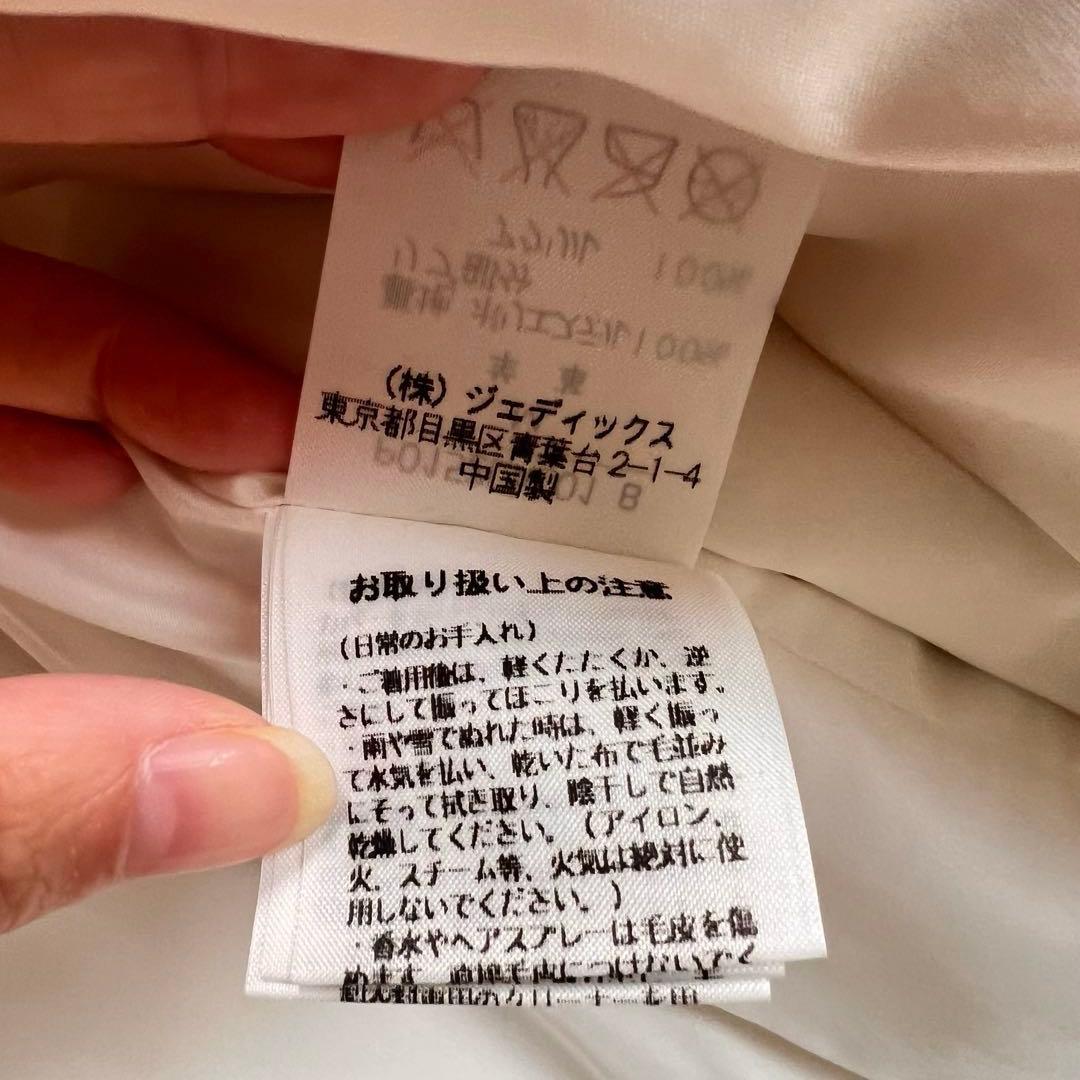 (株) ジェディックス
東京都目黒区青葉台2-1-4
中国製
お取り扱い上の注意
(日常のお手入れ)
・ご着用後は、軽くたたくか、逆
さにして振ってほこりを払います。
・雨や雪でぬれた時は、軽く振っ
て水気を払い、乾いた布で毛並み
にそって拭き取り、陰干しで自然
乾燥してください。(アイロン、
火、スチーム等、火気は絶対に使
用しないでください。)
・香水やヘアスプレーは毛皮を傷